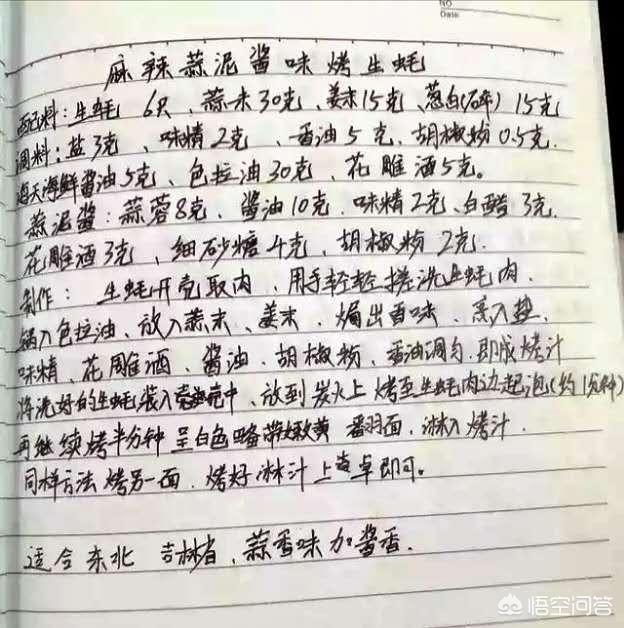 NO
Date
麻辣蒜泥酱味烤生蚝
配料:生蚝 6只、蒜末30克、姜末15克、葱白(碎)15克
调料:盐3克、味精2克、香油5克、胡椒粉0.5克.
海天海鲜酱油5克、色拉油30克、花雕酒5克。
蒜泥酱:蒜蓉8克、酱油10克.味精2克、白醋3克.
花雕酒3克、细砂糖4克、胡椒粉2克.
制作: 生蚝开壳取肉、用手轻轻搓洗生蚝肉.
锅入色拉油、放入蒜末、姜末、焗出香味、烹入盐.
味精、花雕酒、酱油、胡椒粉、香油调匀.即成烤汁
将洗好的生蚝装入壳中、放到炭火上烤至生蚝肉边起泡(约1分钟)
再继续烤半分钟呈白色略带嫩黄 翻面、淋入烤汁.
同样方法烤另一面.烤好淋汁上桌即可。
适合东北 吉林省、蒜香味加酱香.
悟空问答